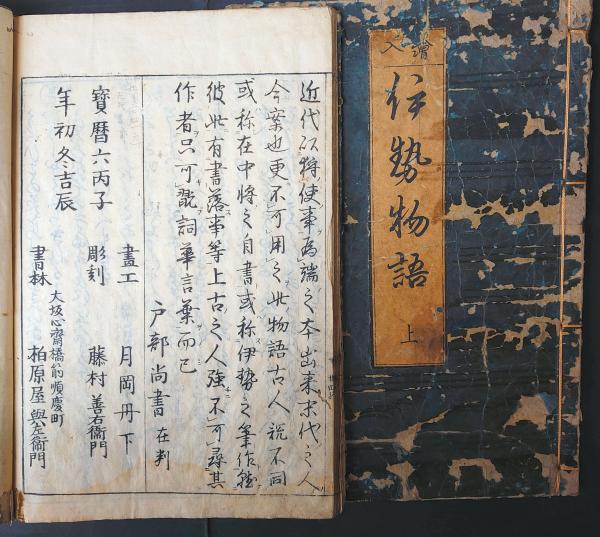 繪入
伊勢物語
上
近代以狩使事為端之本出来末代之人
今案也更不可用之此物語古人説不同
或称在中将之自書或称伊勢之筆作然
彼此有書落事等上古之人強不可尋其
作者只可翫詞華言葉而已
戸部尚書 在判
寶暦六丙子
年初冬吉辰
畫工 月岡丹下
彫刻 藤村善右衞門
大坂心齋橋筋順慶町
書林 柏原屋與左衞門